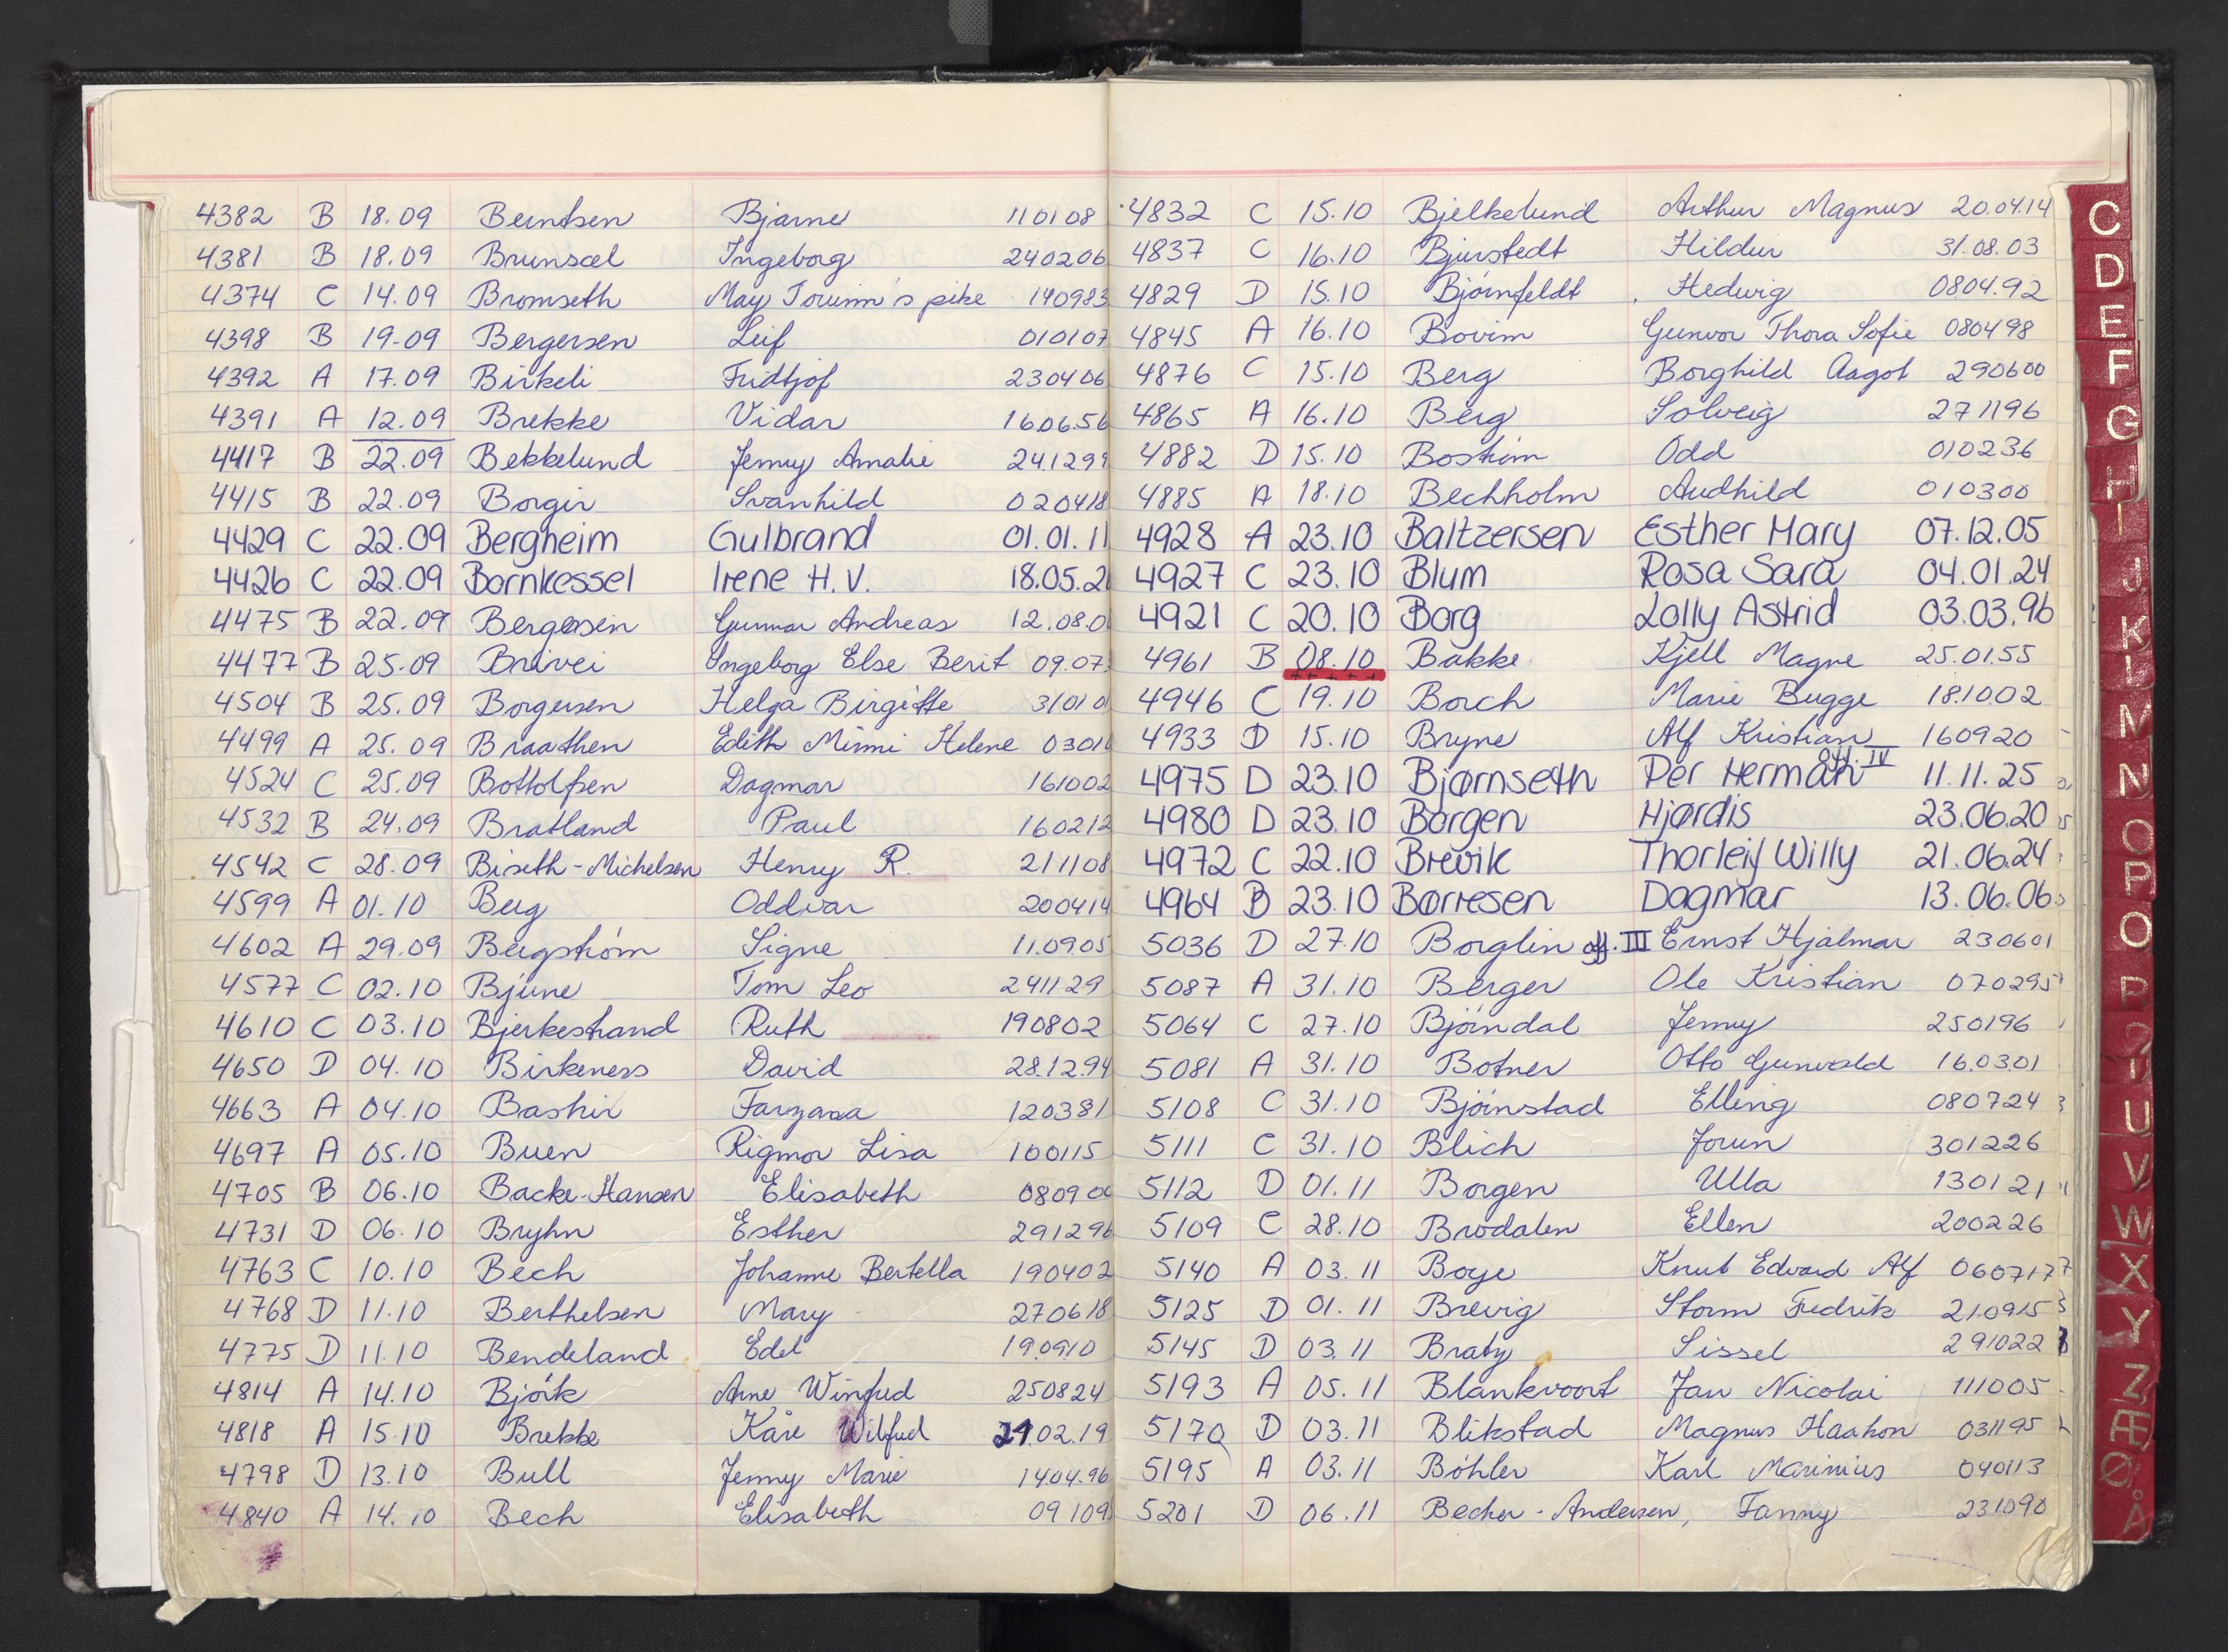 4382 B 18.09 Berntsen Bjarne 110108
4381 B 18.09 Brunsæl Ingeborg 240206
4374 C 14.09 Bromseth May Torunn's pike 140983
4398 B 19-09 Bergersen Leif 010107
4392 A 17.09 Birkeli Fridtjof 230406
4391 A 12.09 Brekke Vidar 16.06.56
4417 B 22.09 Bekkelund Jenny Amalie 24.12.99
4415 B 22.09 Borgir Svanhild 020418
4429 C 22.09 Bergheim Gulbrand 01.01.11
4426 C 22.09 Bornkessel Irene H.V. 18.05.2
4475 B 22.09 Bergersen Gunnar Andreas 12.08.0
4477 B 25.09 Brivei Ingeborg Else Berit 09.07
4504 B 25.09 Borgersen Helga Birgitte 31010
4499 A 25.09 Braathen Edith Minni Helene 0301
4524 C 25.09 Bottolfsen Dagmar 161002
4532 B 24.09 Bratland Paul 160212
4542 C 28.09 Biseth-Michelsen Henry R. 211108
4599 A 01.10 Berg Oddvar 200414
4602 A 29.09 Bergström Signe 11.09.05
4577 C 02.10 Bjune Tom Leo 241129
4610 C 03.10 Bjerkestrand Ruth 190802
4650 D 04.10 Birkeness David 28.12.94
4663 A 04.10 Bashir Farzana 120381
4697 A 05.10 Buen Rigmor Lisa 100115
4705 B 06.10 Backe-Hansen Elisabeth 080900
4731 D 06.10 Bryhn Esther 291296
4763 C 10.10 Bech Johanne Bertella 190402
4768 D 11.10 Berthelsen Mary 270618
4775 D 11.10 Bendeland Edel 190910
4814 A 14.10 Björk Arne Winfred 250824
4818 A 15.10 Brekke Kåre Wilfred 02.19
4798 D 13.10 Bull Jenny Marie 14.04.96
4840 A 14.10 Bech Elisabeth 09109
4832 C 15.10 Bjelkelund Arthur Magnus 20.04.14
4837 C 16.10 Bjurstedt Hildur 31.08.03
4829 D 15.10 Björnfeldt Hedwig 0804.92
4845 A 16.10 Bovim Gunvor Thora Sofie 080498
4876 C 15.10 Berg Borghild Aagot 290600
4865 A 16.10 Berg Solveig 271196
4882 D 15.10 Boström Odd 010236
4885 A 18.10 Bechholm Audhild 010300
4928 A 23.10 Baltzersen Esther Mary 07.12.05
4927 C 23.10 Blum Rosa Sara 04.01.24
4921 C 20.10 Borg Lolly Astrid 03.03.96
4961 B 08.10 Bakke Kjell Magne 25.01.55
4946 C 19.10 Borch Marie Bugge 18.10.02
4933 D 15.10 Bryne Alf Kristian 160920
4975 D 23.10 Bjørnseth Per Herman avd. IV 11.11.25
4980 D 23.10 Borgen Hjørdis 23.06.20
4972 C 22.10 Brevik Thorleif Willy 21.06.24
4964 B 23.10 Børresen Dagmar 13.06.06
5036 D 27.10 Borglin III Ernst Hjalmar 230601
5087 A 31.10 Berger Ole Kristian 070295
5064 C 27.10 Björndal Jenny 250196
5081 A 31.10 Botner Otto Gunvald 16.0301
5108 C 31.10 Björnstad Elling 080724
5111 C 31.10 Blich Jorun 301226
5112 D 01.11 Borgen Ulla 130121
5109 C 28.10 Brodalen Ellen 200226
5140 A 03.11 Boye Knut Edvard Alf 060717
5125 D 01.11 Brevig Storm Fredrik 21.0915
5145 D 03.11 Braty Sissel 291022
5193 A 05.11 Blankvoort Jan Nicolai 111005
5170 D 03.11 Blikstad Magnus Haakon 031195
5195 A 03.11 Böhler Karl Marinius 040113
5201 D 06.11 Becher-Andersen, Fanny 231090
C
D
E
F
G
H
I
J
K
L
M
N
O
P
U
V
W
X
Y
Z
Æ
Ø
Å